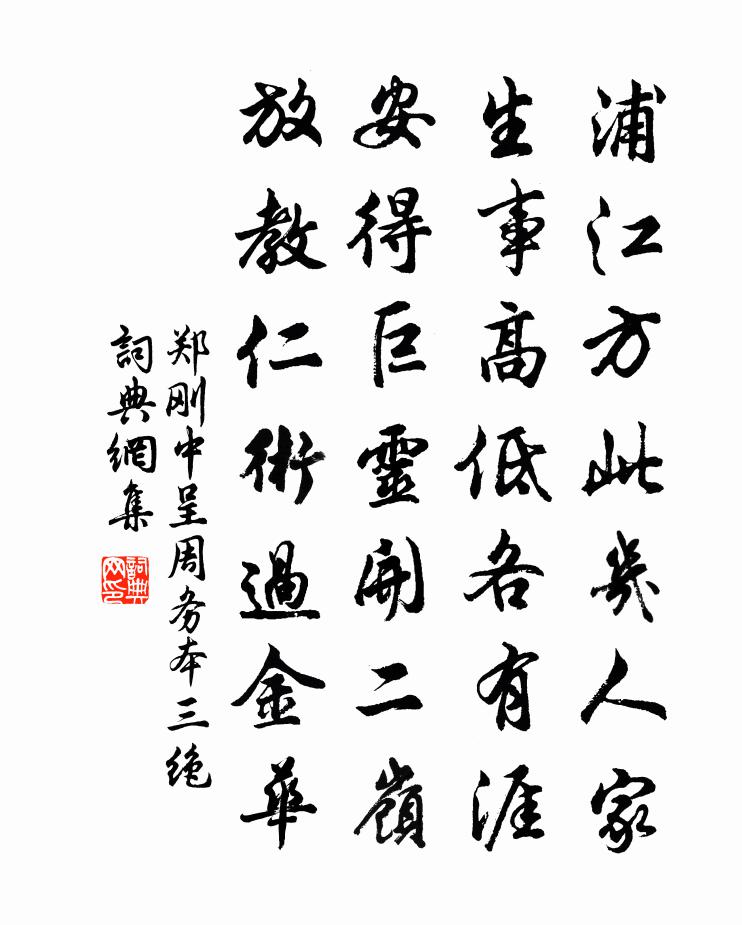 浦江方此幾人家
生事高低各有涯
安得巨靈開二嶺
放教仁術過金華
郑刚中呈周务本三绝
詞典網集
詞典网印